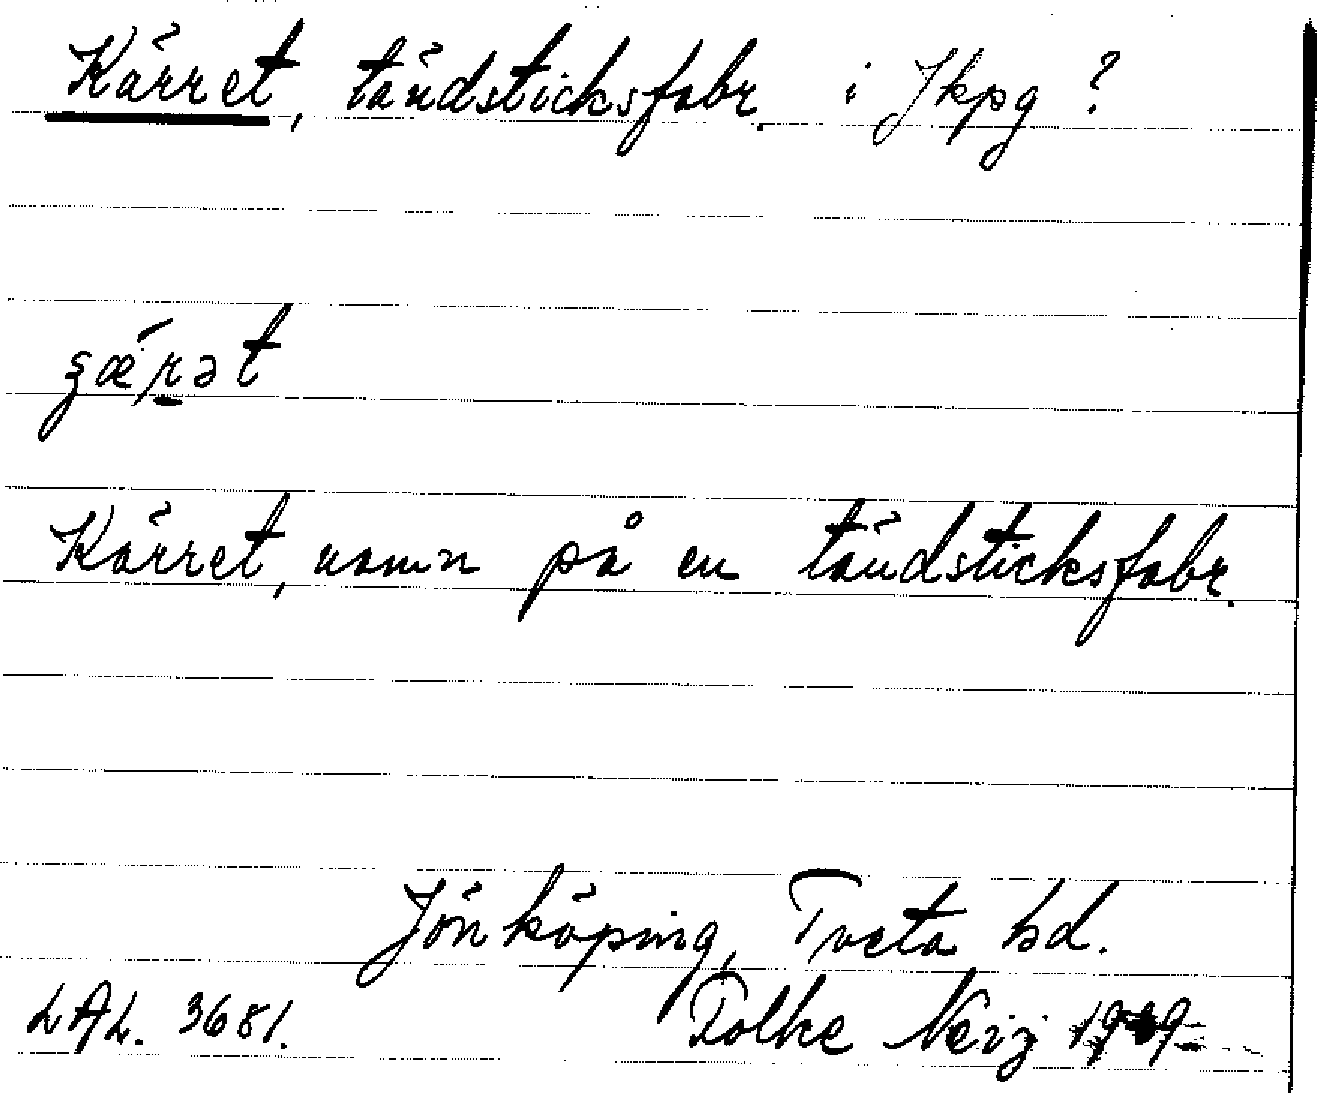 Kärret, tändsticksfabr. i Jkpg ?
Kärret, namn på en tändsticksfabr.
Jönköping, Tveta hd.
LAL. 3681. Folke Neij